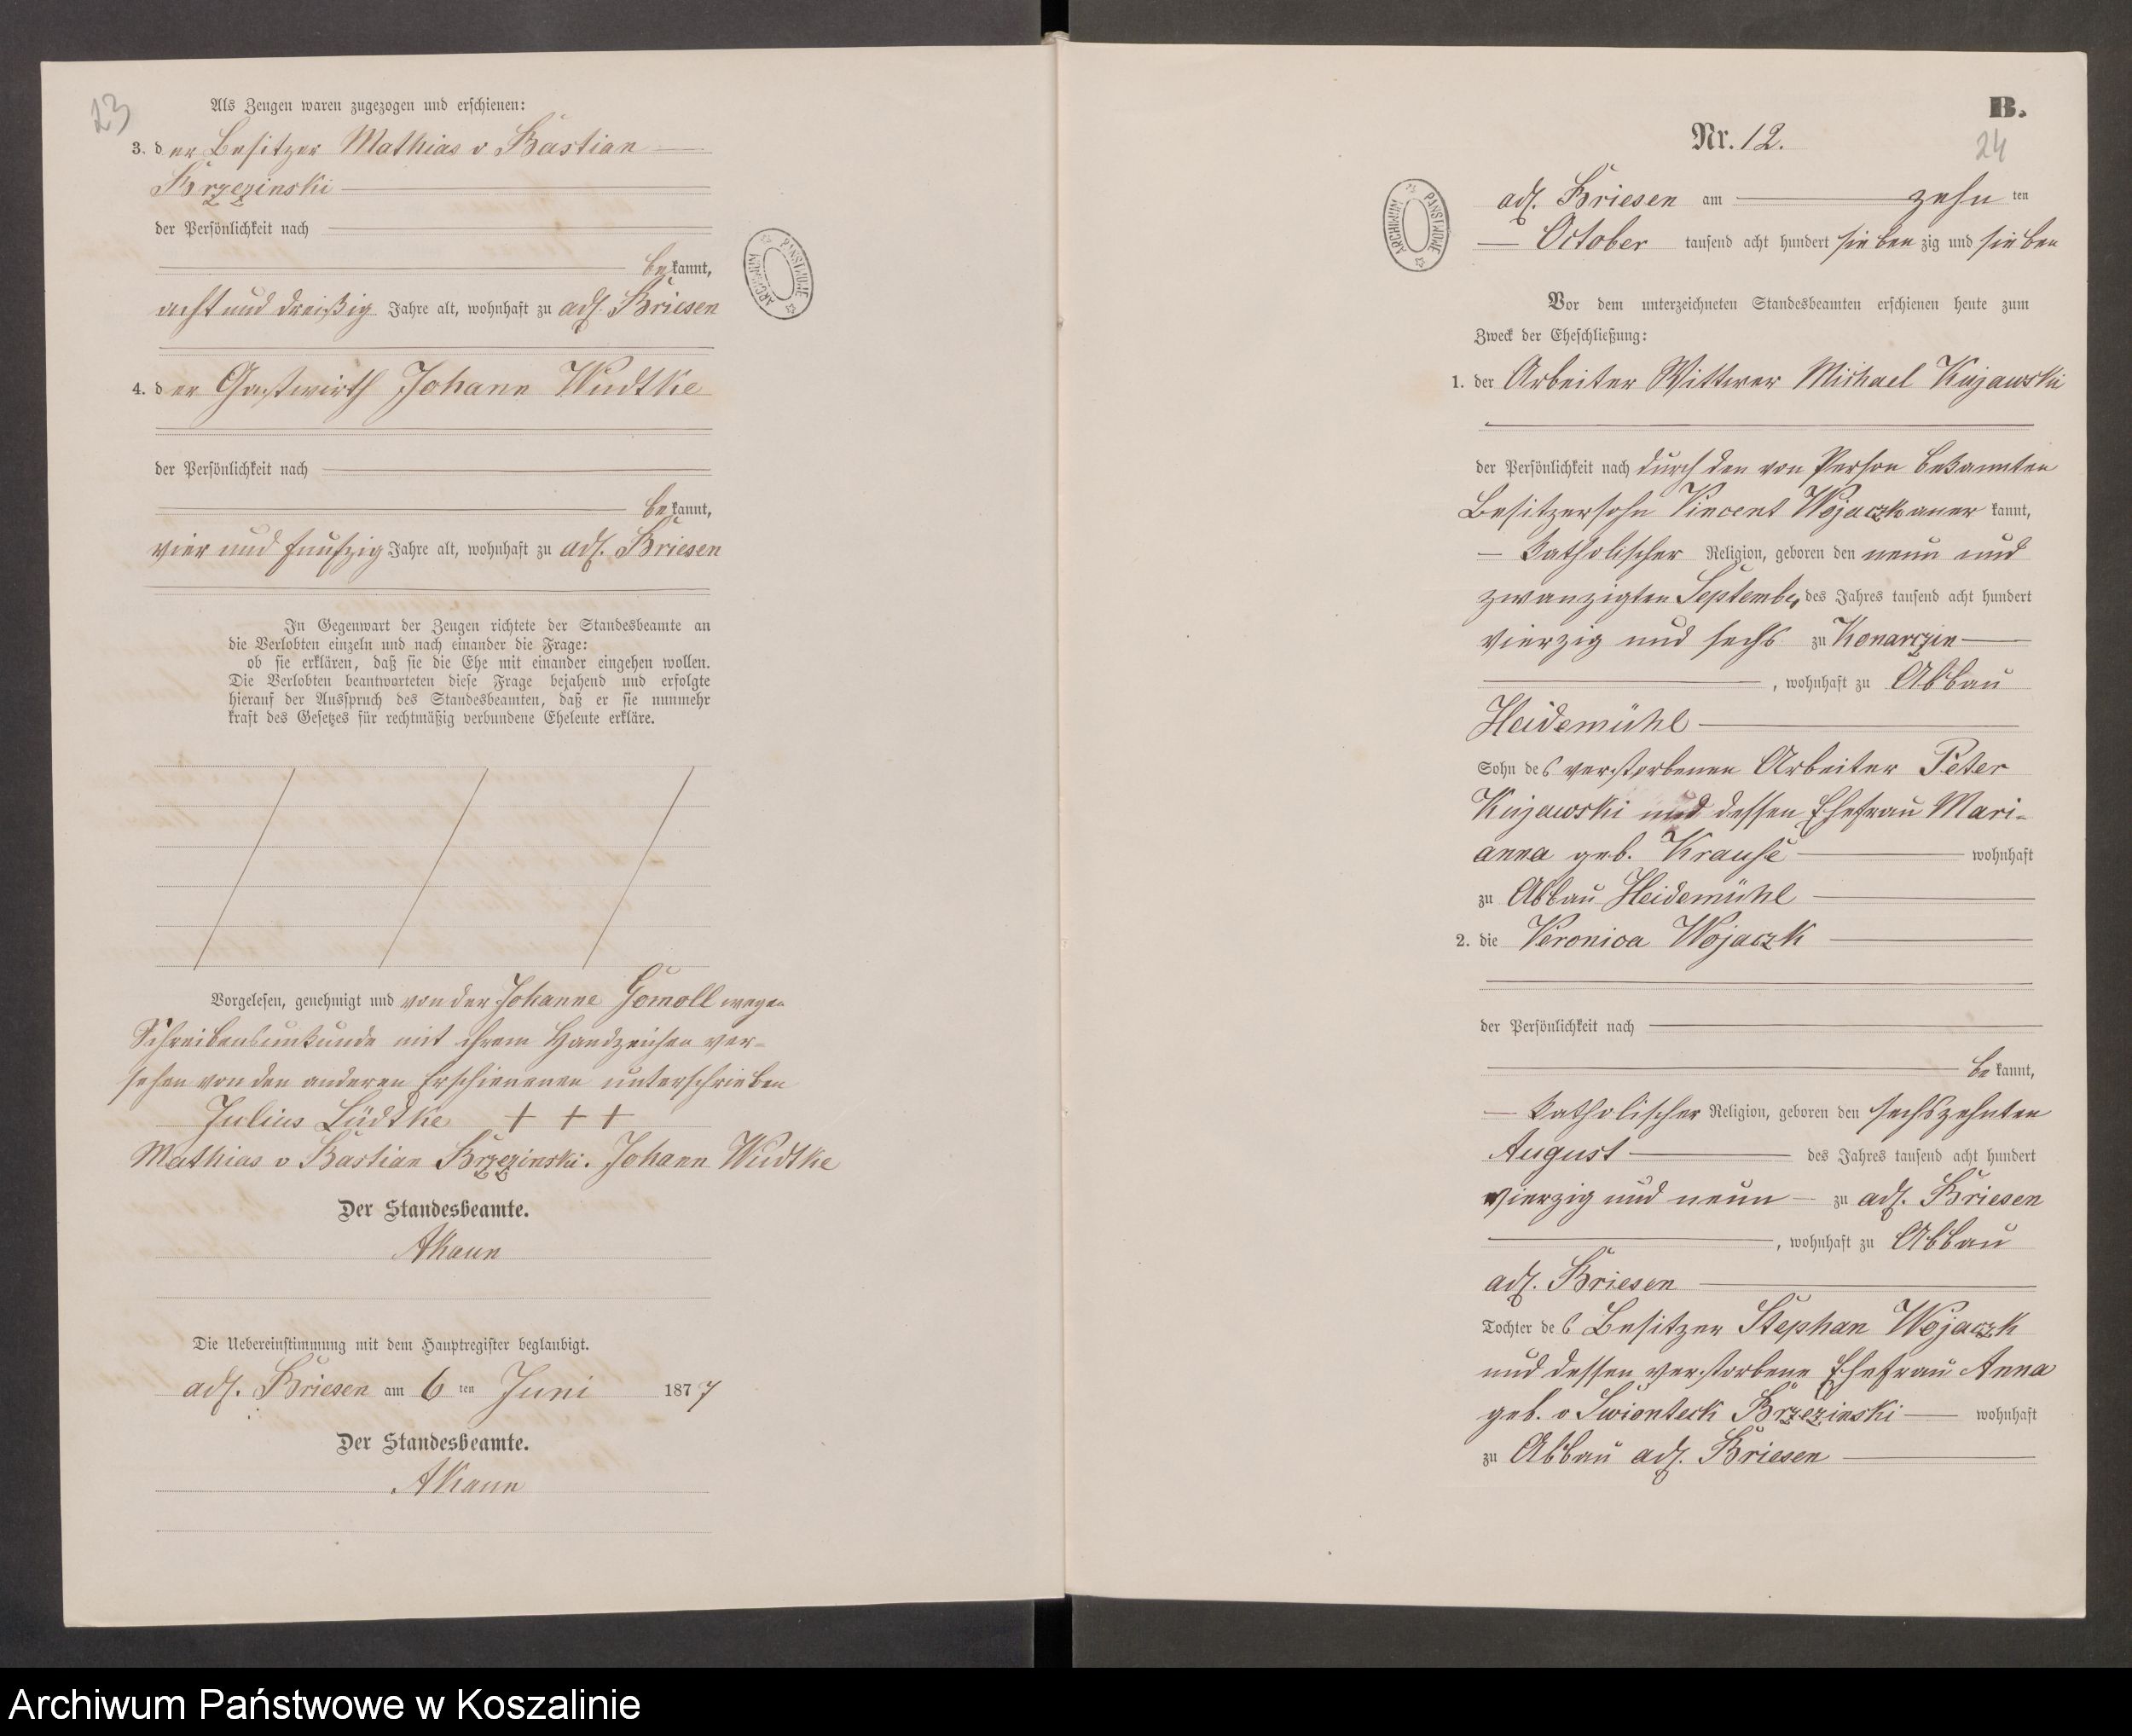 23
Als Zeugen waren zugezogen und erschienen:
3. der Besitzer Mathias v Bastian
Brzezinski
der Persönlichkeit nach
bekannt,
acht und dreißig Jahre alt, wohnhaft zu adl. Briesen
4. der Gastwirth Johann Wudtke
der Persönlichkeit nach
bekannt,
vier und funfzig Jahre alt, wohnhaft zu adl. Briesen
In Gegenwart der Zeugen richtete der Standesbeamte an
die Verlobten einzeln und nach einander die Frage:
ob sie erklären, daß sie die Ehe mit einander eingehen wollen.
Die Verlobten beantworteten diese Frage bejahend und erfolgte
hierauf der Ausspruch des Standesbeamten, daß er sie nunmehr
kraft des Gesetzes für rechtmäßig verbundene Eheleute erkläre.
Vorgelesen, genehmigt und von der Johanne Gomoll wegen
Schreibensunkunde mit ihrem Handzeichen ver-
sehen von den anderen Erschienenen unterschrieben
Julius Lüdtke + + +
Mathias v Bastian Brzezinski. Johann Wudtke
Der Standesbeamte.
Die Uebereinstimmung mit dem Hauptregister beglaubigt.
adl. Briesen am 6 ten Juni 1877
Der Standesbeamte.
ARCHIWUM PAŃSTWOWE
B.
Nr. 12.
24
adl. Briesen am zehn ten
October tausend acht hundert sieben zig und sieben
ARCHIWUM PAŃSTWOWE
Vor dem unterzeichneten Standesbeamten erschienen heute zum
Zweck der Eheschließung:
1. der Arbeiter Wittwer Michael Kujawski
der Persönlichkeit nach durch den von Person bekannten
Besitzersohn Vincent Wojaczk aner kannt,
katholischer Religion, geboren den neun und
zwanzigten September des Jahres tausend acht hundert
vierzig und sechs zu Konarczin
, wohnhaft zu Abbau
Heidemühl
Sohn des verstorbenen Arbeiter Peter
Kujawski und dessen Ehefrau Mari-
anna geb. Krause wohnhaft
zu Abbau Heidemühl
2. die Veronica Wojaczk
der Persönlichkeit nach
be kannt,
katholischer Religion, geboren den sechszehnten
August des Jahres tausend acht hundert
vierzig und neun zu adl. Briesen
, wohnhaft zu Abbau
adl. Briesen
Tochter des Besitzer Stephan Wojaczk
und dessen verstorbene Ehefrau Anna
geb. v Swionteck Brzezinski wohnhaft
zu Abbau adl. Briesen
Archiwum Państwowe w Koszalinie